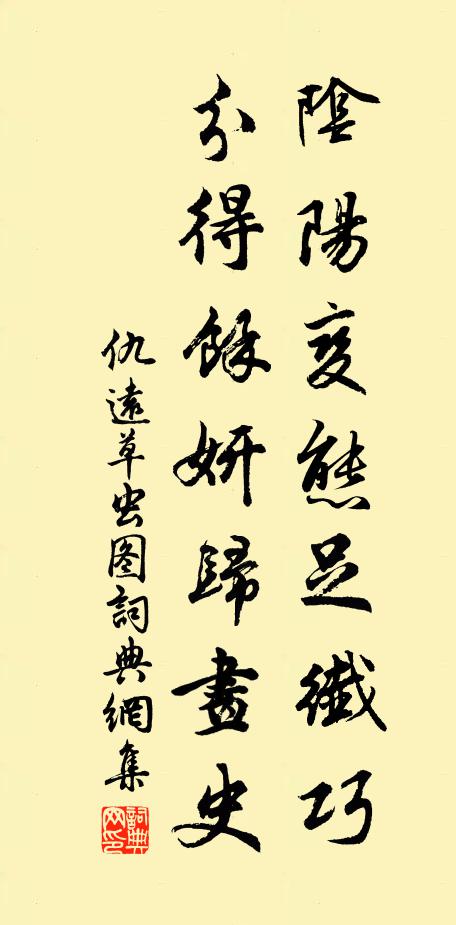 陰陽变態足纖巧
分得餘妍歸畫史
仇遠草虫图詞典網集
詞典网印